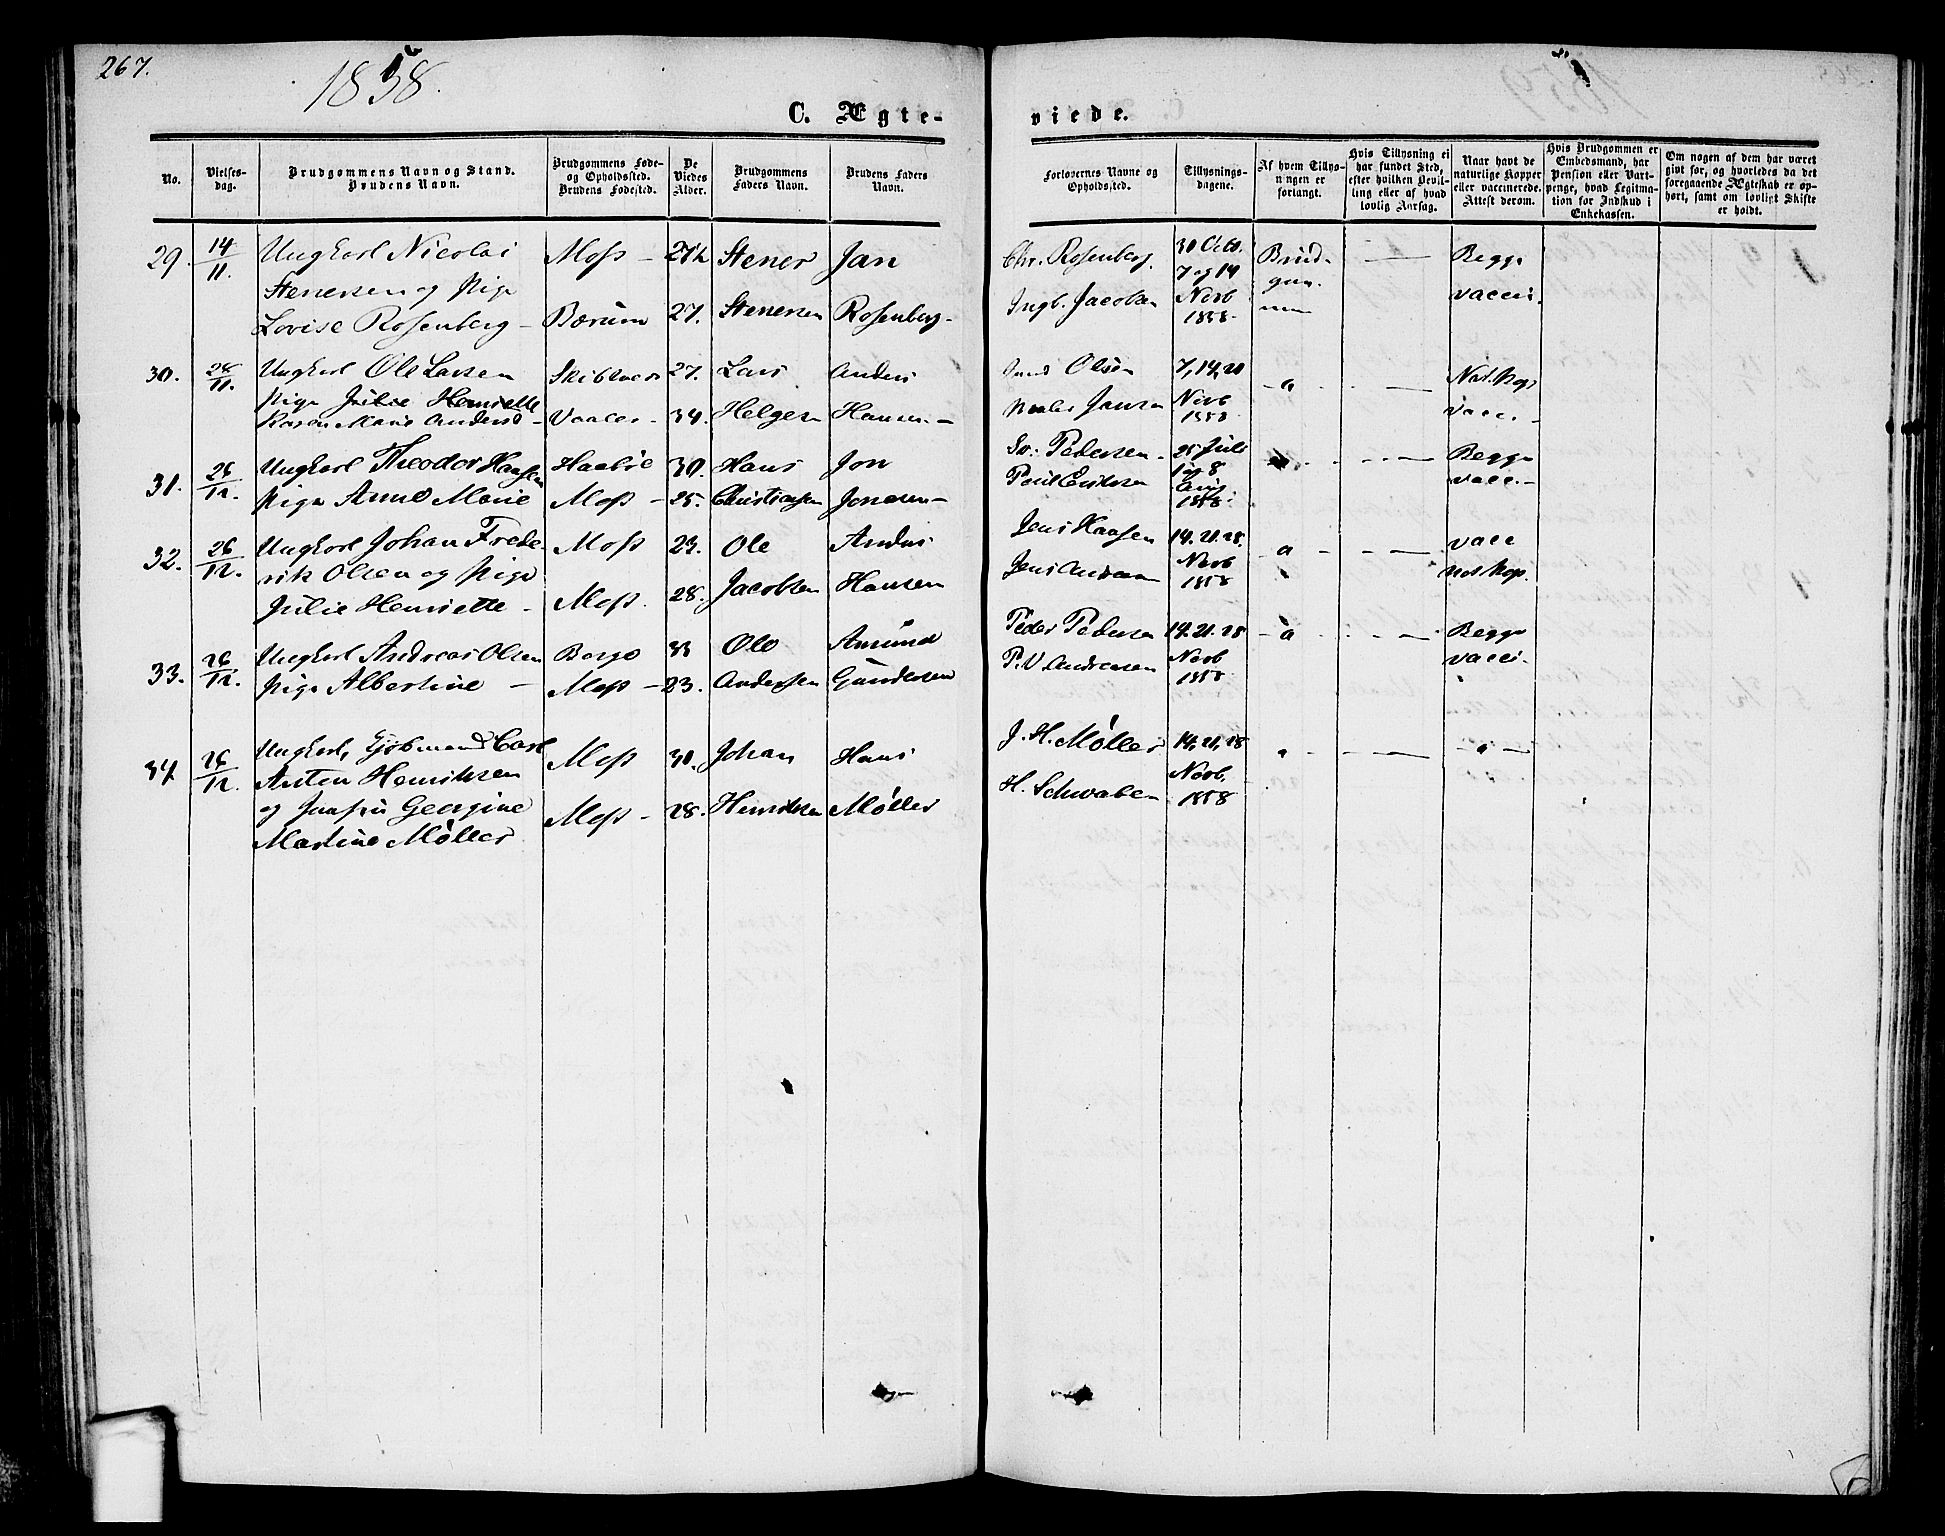 267.
1858.
C. Ægte-
viede.
No.
Vielses-
dag.
Brudgommens Navn og Stand.
Brudens Navn.
Brudgommens Føde-
og Opholdssted.
Brudens Fødested.
De
Viedes
Alder.
Brudgommens
Faders Navn.
Brudens Faders
Navn.
Forlovernes Navne og
Opholdssted.
Tillysnings-
dagene.
Af hvem Tillys-
ningen er
forlangt.
Hvis Tillysning ei
har fundet Sted,
efter hvilken Bevil-
ling eller af hvad
lovlig Aarsag.
Naar havt de
naturlige Kopper
eller vaccinerede.
Attest derom.
Hvis Brudgommen er
Embedsmand, har
Pension eller Vart-
penge, hvad Legitima-
tion for Indskud i
Enkekassen.
Om nogen af dem har været
givt før, og hvorledes da det
foregaaende Ægteskab er op-
hørt, samt om lovligt Skifte
er holdt.
29. 14/11. Ungkarl Nicolai
Stenersen og Pige
Lovise Rosenberg -
Moss -
Bærum
27½
27.
Stener
Stenersen
Jan
Rosenberg -
Chr. Rosenberg.
Ingb. Jacobsen
30 Octo.
7 og 14
Novb
1858.
Brud-
gom-
men
Begge
vacci.
30. 28/11. Ungkarl Ole Larsen
Pige Julie Henriette
Karen Marie Anders -
Skibtvet
Vaaler -
27.
34.
Lars
Helgesen
Anders
Hansen -
Olsen
Jansen
7, 14, 21
Novb
1858
Nat. Kop.
vacc. -
31. 26/12. Ungkarl Theodor Haagsen
Pige Anne Marie
Haabøe
Moss -
30.
25.
Hans
Christiansen
Jon
Jonesen -
Sv. Pedersen -
Poul Eriksen
25 Juli
1 og 8
Aug
1858.
Begge
vacc. -
32. 26/12. Ungkarl Johan Frede-
rik Olsen og Pige
Julie Henriette -
Moss -
Moss.
23.
28.
Ole
Jacobsen
Anders
Hansen
Jens Haagsen
Jens Andersen
14. 21. 28.
Novb
1858
vacc
nat. Kop.
33. 26/12. Ungkarl Andreas Olsen
Pige Albertine -
Borge
Moss -
33
23.
Ole
Andersen
Amund
Gundersen
Peder Pedersen
P. V. Andresen
14. 21. 28
Novb
1858
Begge
vacci.
34. 26/12. Ungkarl, Kjøbmand Carl
Anton Henriksen
og Jomfru Georgine
Martine Møller
Moss
Moss -
30.
28.
Johan
Henriksen
Hans
Møller
J. H. Møller
H. Schwaben
14, 21, 28
Novb.
1858